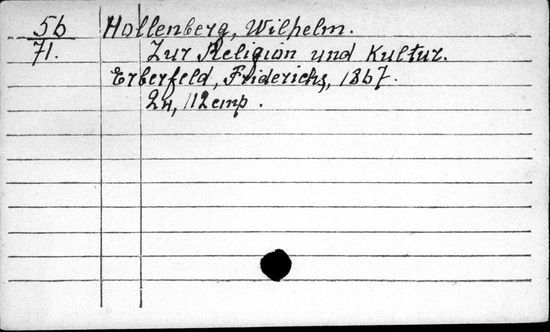 56 Hollenberg, Wilhelm.
71. Zur Religion und Kultur.
Erberfeld, Friderichs, 1867.
112 cmp.